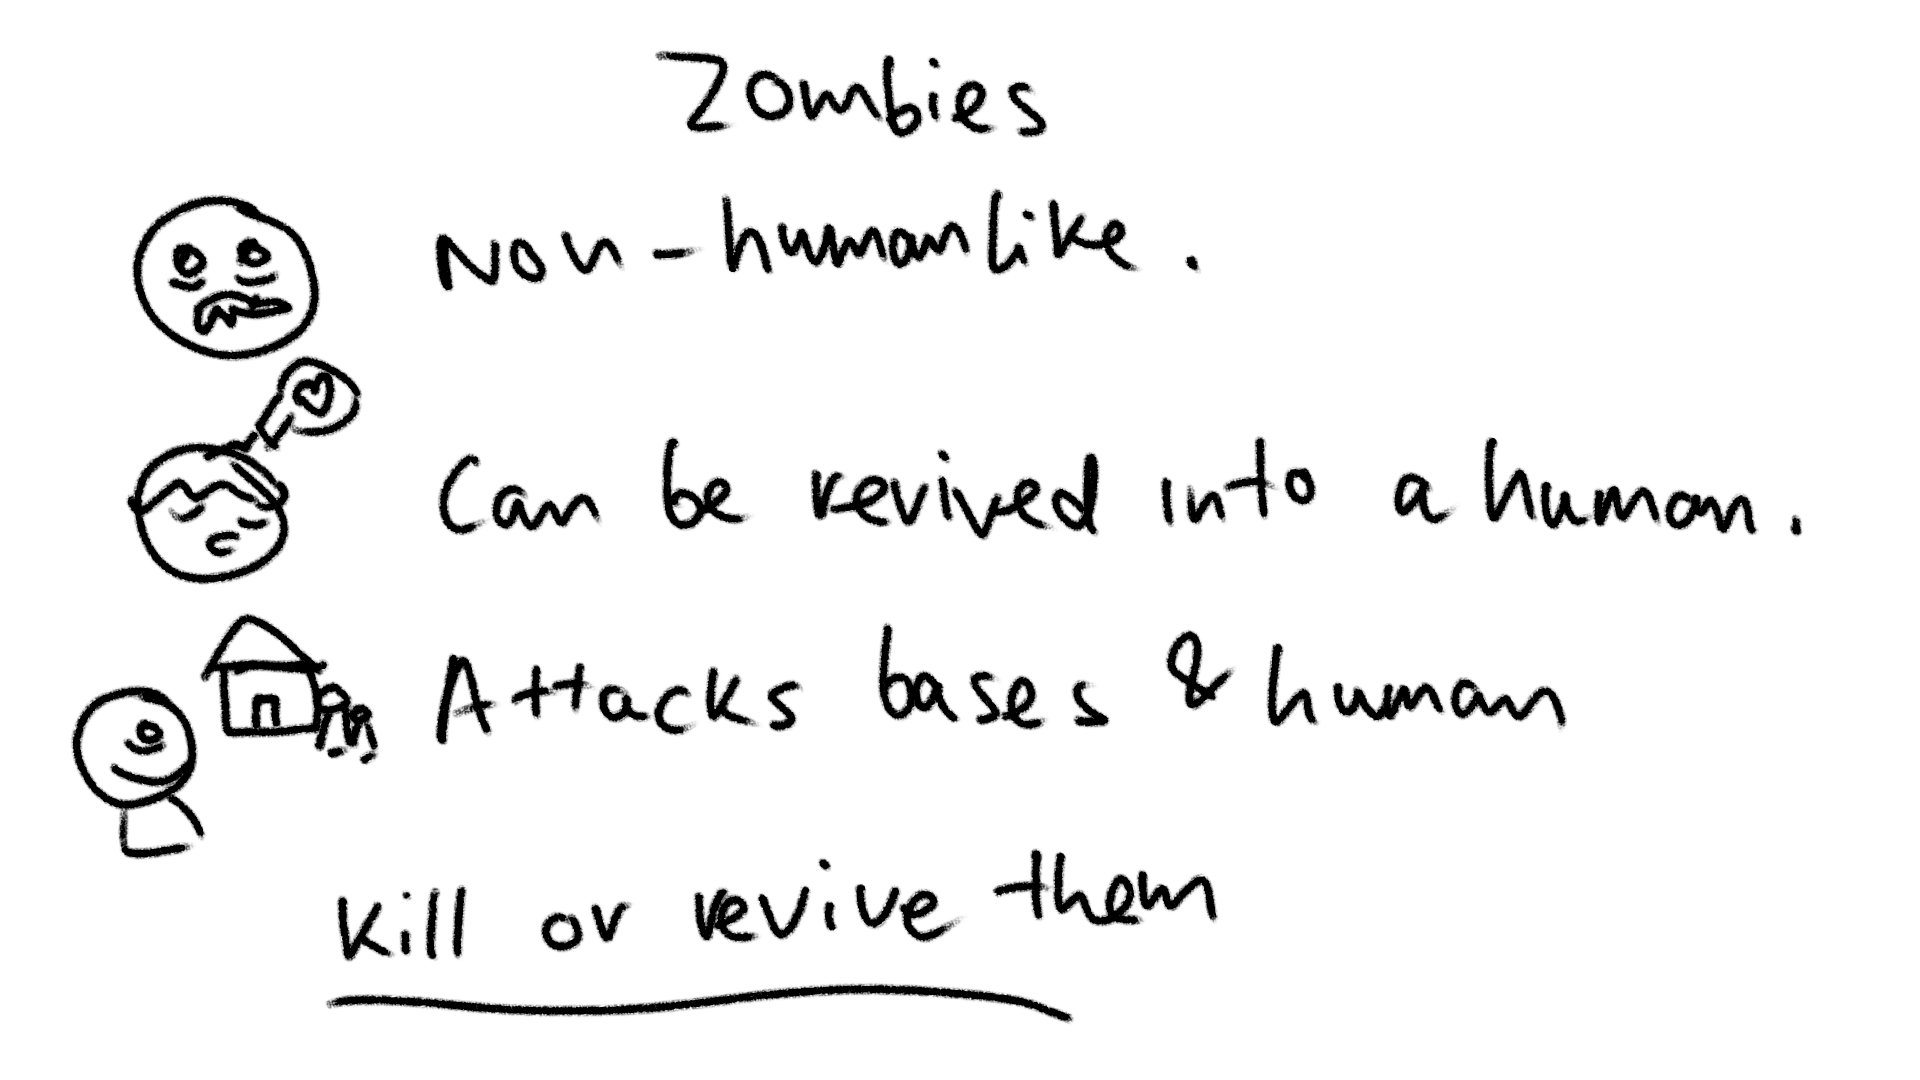 Zombies
Non-humanlike.
Can be revived into a human.
Attacks bases & human
Kill or revive them